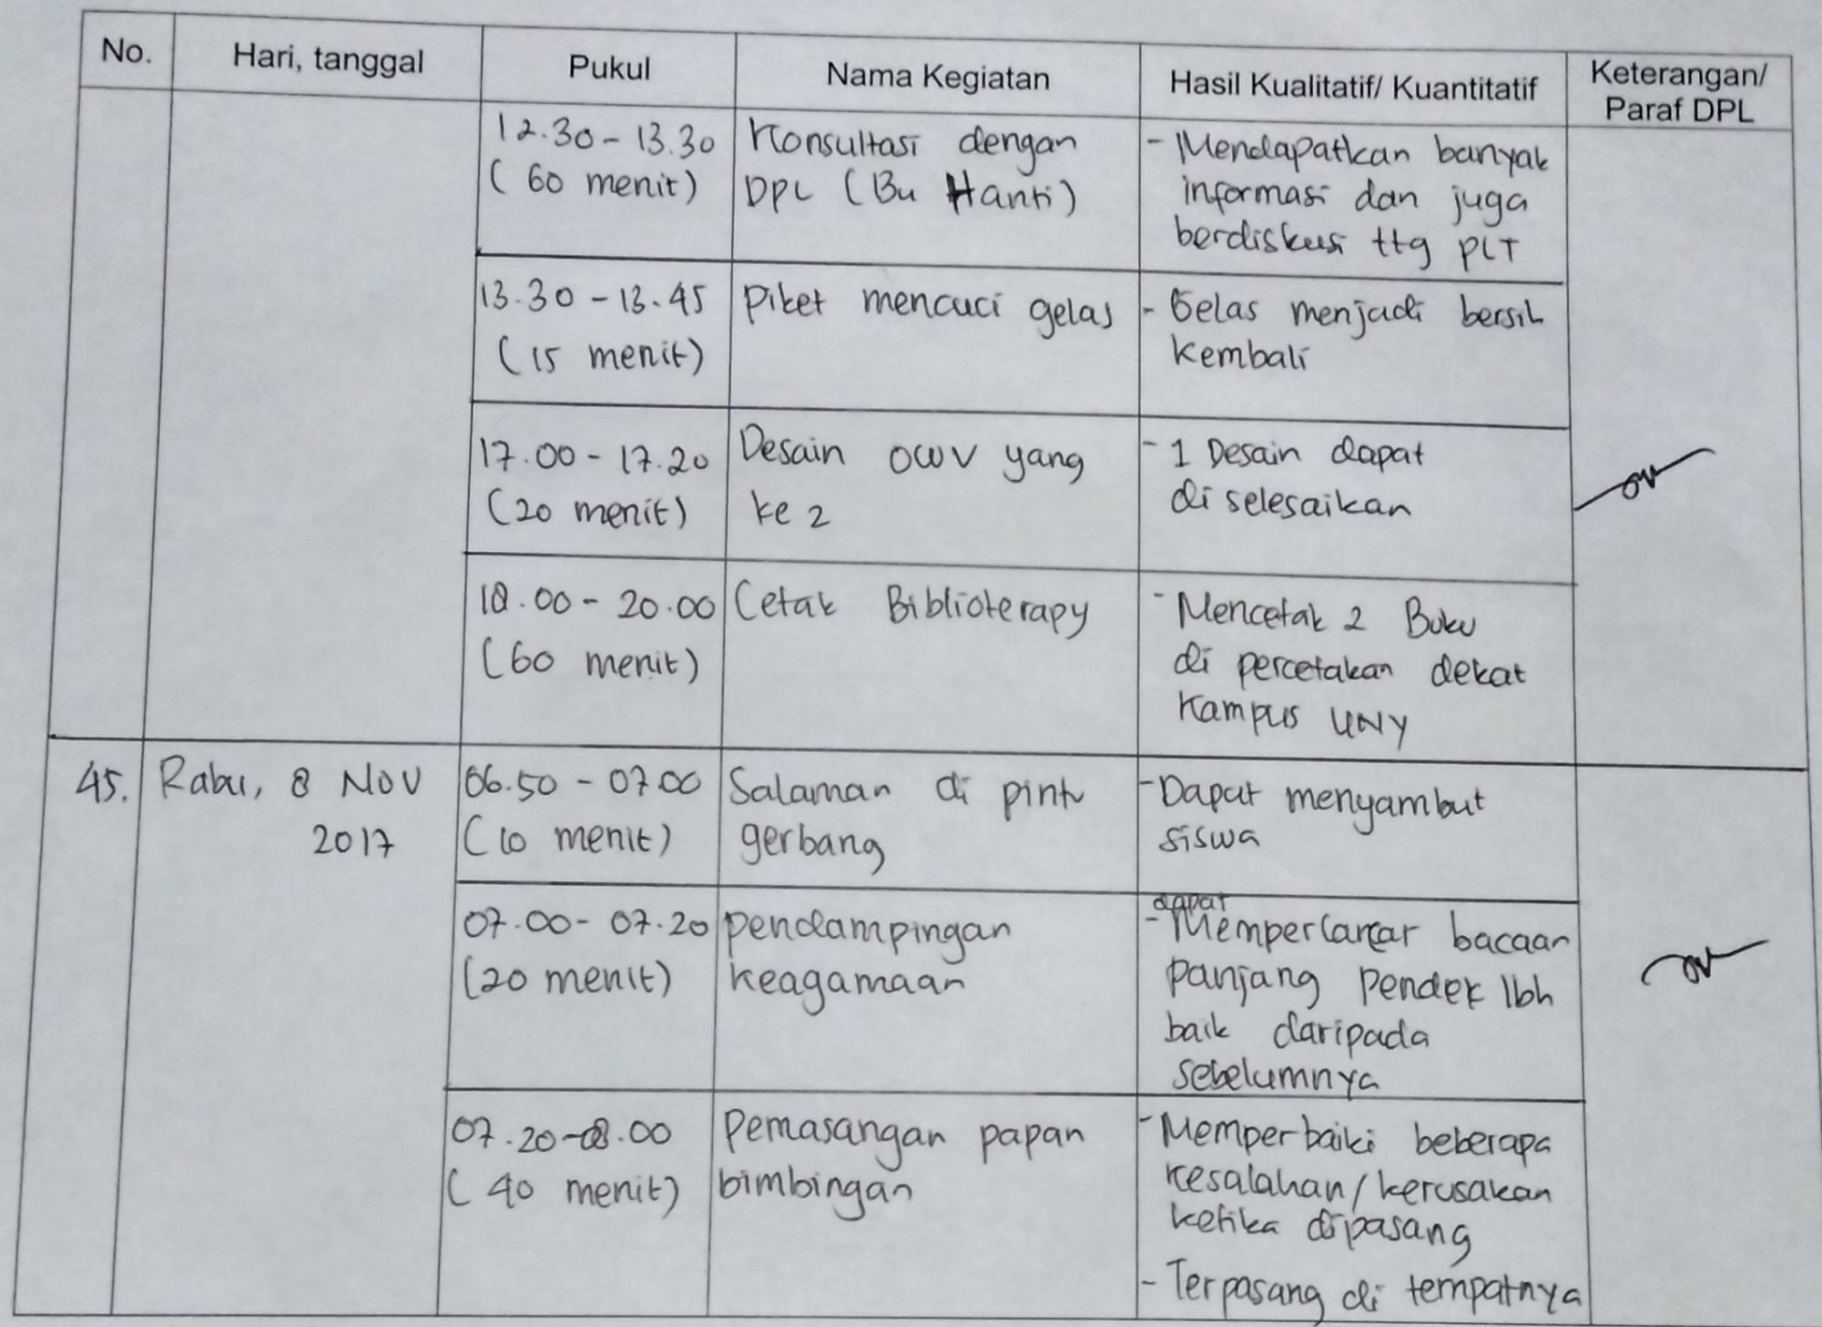 No. Hari, tanggal Pukul Nama Kegiatan Hasil Kualitatif/ Kuantitatif Keterangan/ Paraf DPL
12.30 - 13.30
(60 menit)
Konsultasi dengan
DPL (Bu Hanti)
- Mendapatkan banyak
informasi dan juga
berdiskusi ttg PLT
13.30 - 13.45
(15 menit)
Piket mencuci gelas
- Gelas menjadi bersih
kembali
17.00 - 17.20
(20 menit)
Desain OWV yang
ke 2
- 1 Desain dapat
di selesaikan
- 20.00
(60 menit)
Cetak Biblioterapy
- Mencetak 2 Buku
di percetakan dekat
Kampus UNY
45.
Rabu, 8 Nov
2017
06.50 - 07.00
(10 menit)
Salaman di pintu
gerbang
- Dapat menyambut
siswa
07.00 - 07.20
(20 menit)
Pendampingan
keagamaan
dapat
- Memperlancar bacaan
panjang pendek lbh
baik daripada
sebelumnya
07.20 - 08.00
(40 menit)
Pemasangan papan
bimbingan
- Memperbaiki beberapa
kesalahan/kerusakan
ketika dipasang
- Terpasang di tempatnya